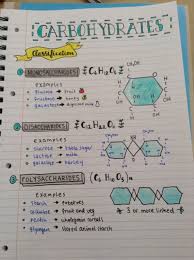 CARBOHYDRATES
Classification
1 MONOSACCHARIDES { C6 H12 O6 }
examples
glucose → fruit
fructose → honey
galactose →
CH2OH
2 DISACCHARIDES { C12 H22 O11 }
examples
sucrose → table sugar
lactose → milk
maltose → barley
3 POLYSACCHARIDES (C6 H10 O5)n
examples
starch → potatoes
cellulose → fruit and veg
pectin → wholegrain cereals
glycogen → stored animal starch
3 or more linked